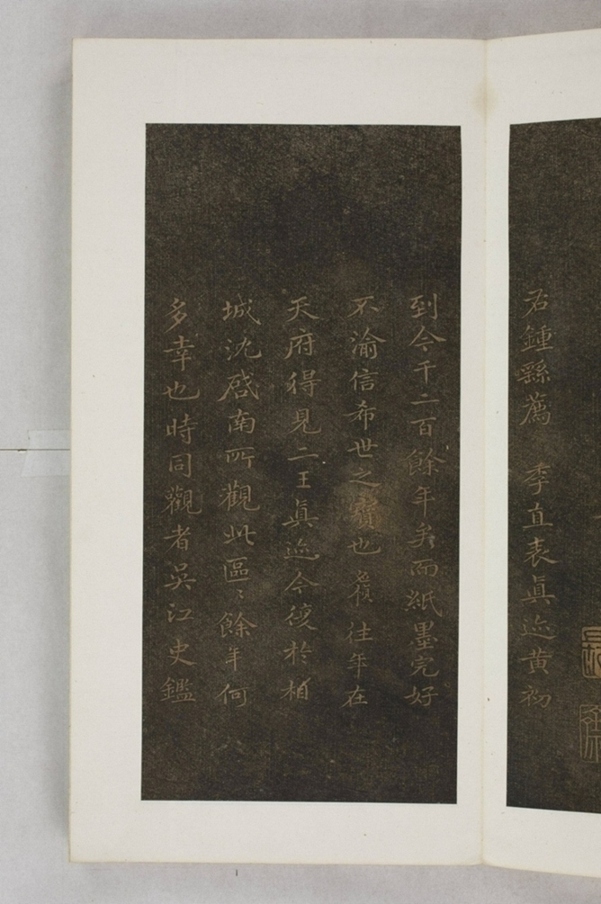 君鍾繇薦 季直表真迹黄初
到今千二百餘年矣而紙墨完好
不渝信希世之寶也 往年在
天府得見二王真迹今後於相
城沈啓南所觀此區〻餘年何
多幸也時同觀者吳江史鑑